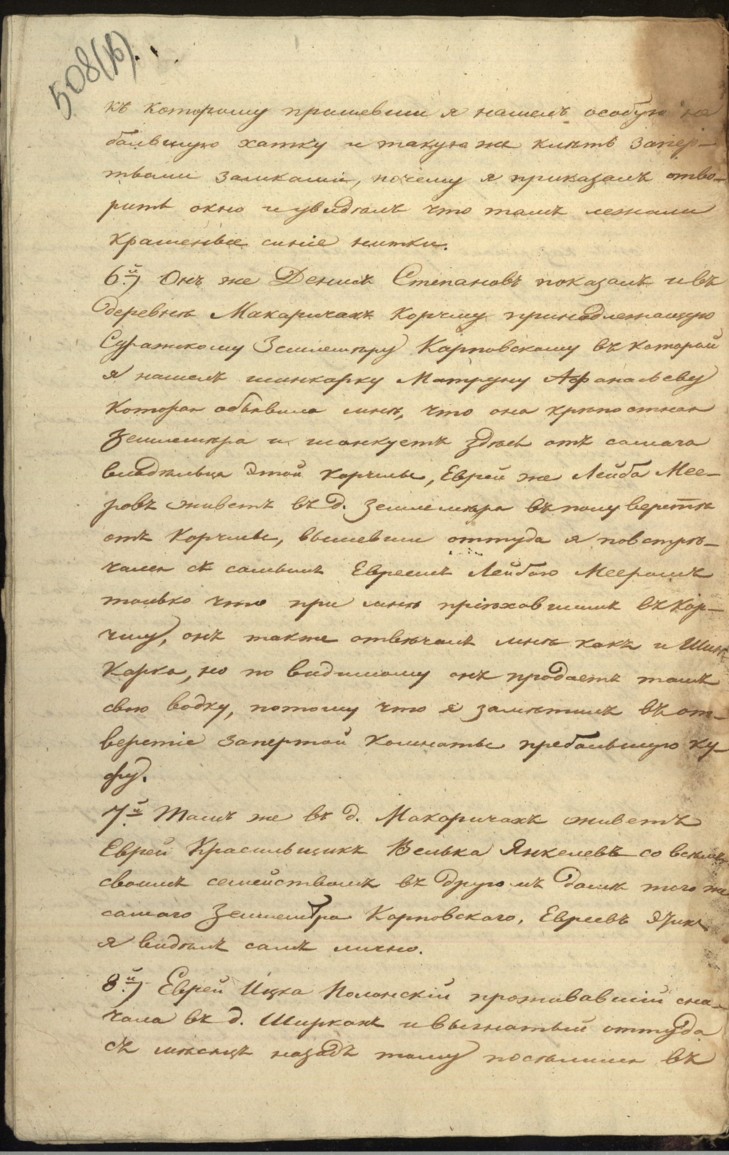 508(16).
къ которому пришевши я нашелъ особую не
бальшую хатку и такую же клеть запер-
тыми замками, почему я приказалъ отво-
рить окно и увидѣлъ что тамъ лежали
крашеныя синіе нитки.
6й) Онъ же Денисъ Степановъ показалъ и въ
деревнѣ Макаричахъ корчму принадлежащую
Суражскому Землемѣру Карповскому въ которой
я нашелъ шинкарку Матруну Афанасьеву
которая объявила мнѣ, что она крѣпостная
Землемѣра и шинкуетъ здѣсь отъ самаго
владѣльца этой корчмы, Еврей же Лейба Мее-
ровъ живетъ въ д. Землемѣра въ полу верстѣ
отъ корчмы, вышевши оттуда я повстрѣ-
чался съ самымъ Евреемъ Лейбою Мееромъ
только что при мнѣ пріѣховшимъ въ кор-
чму, онъ также отвѣчалъ мнѣ какъ и Шин
карка, но по видимому онъ продаетъ тамъ
свою водку, потому что я замѣтилъ въ от-
верстіе запертой комнаты пребальшую ку-
фу.
7й Тамъ же въ д. Макаричахъ живетъ
Еврей Красильщикъ Велька Янкелевъ со всѣмъ
своимъ семействомъ въ другомъ домѣ того же
самаго Землемѣра Карповского, Евреевъ
я видѣлъ самъ лично.
8й) Еврей Ицка Полонскій проживавшій сна-
чала въ д. Ширкахъ и выгнатый оттуда
съ мѣсяцъ назадъ тому поселился въ